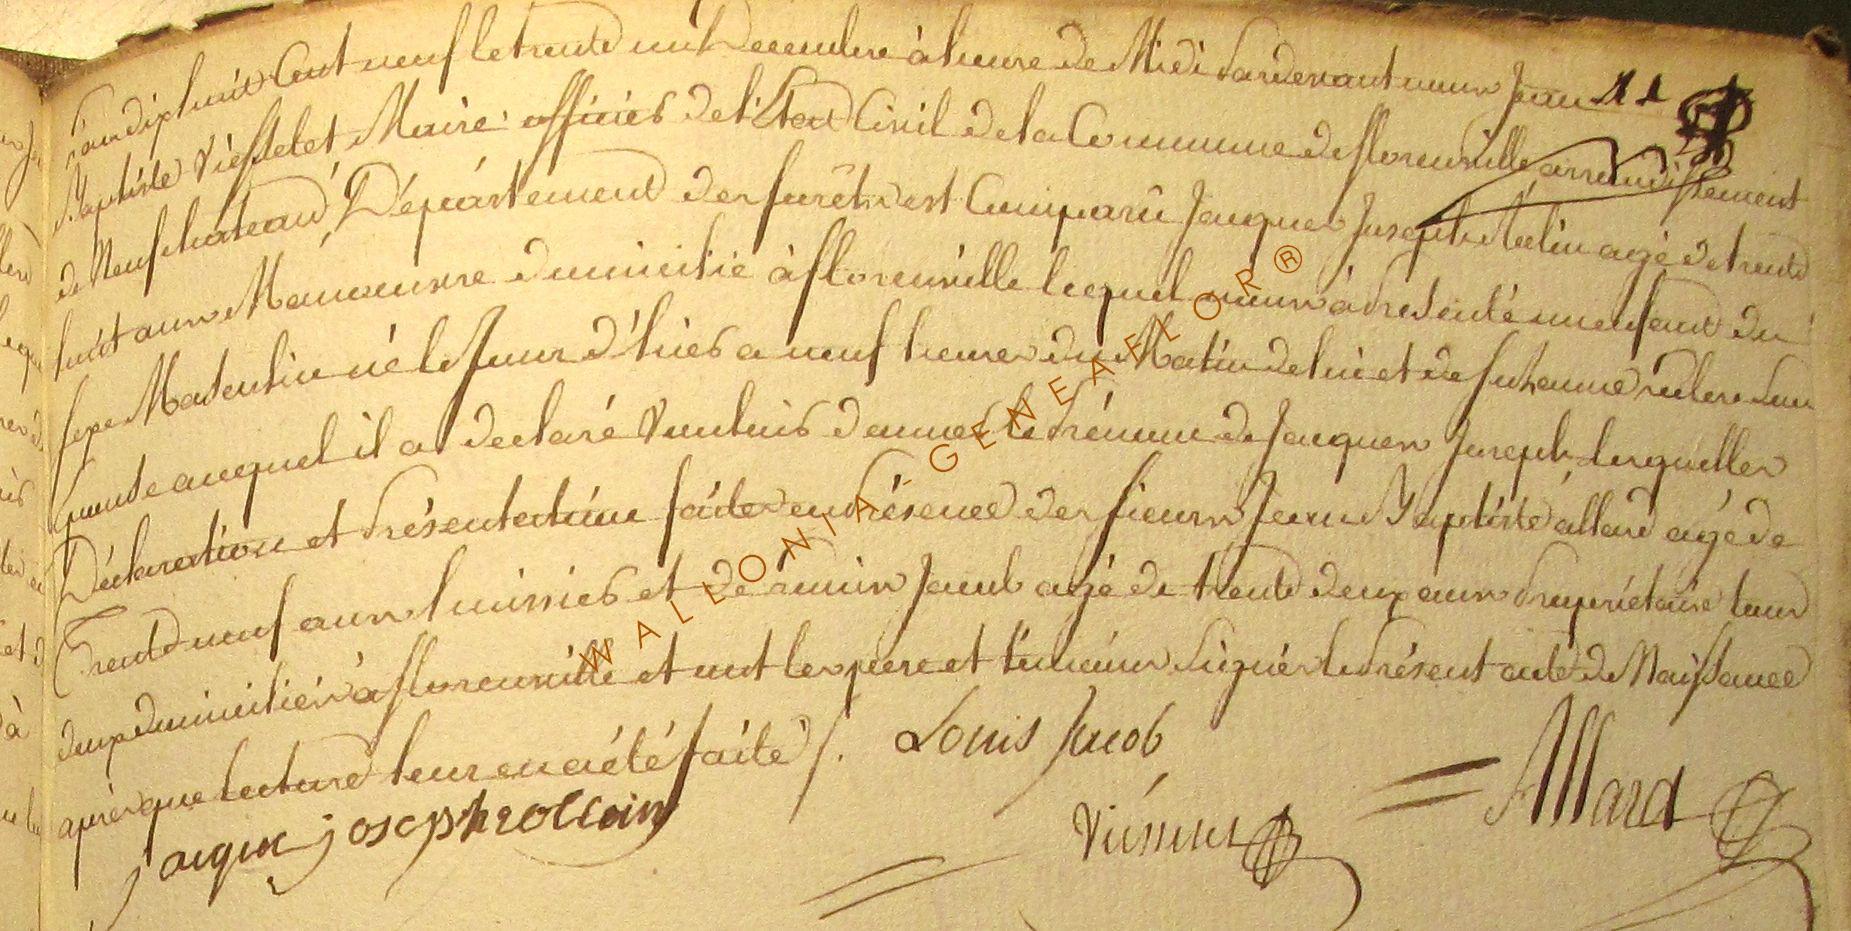 L'an dix huit Cent neuf le trente un Decembre à l'heure de Midi Pardevant nous Jean
Baptiste Maire officier de l'Etat Civil de la Commune de florenville arrondissement
de Neufchateau Département des forêts est Comparû Jacques Joseph agé de trente
huit ans Manoeuvre domicilié à florenville lequel nous à présenté un enfant du
sexe Masculin né le Jour d'hier a neuf heures du Matin de lui et de Suzanne son
épouse auquel il a declaré vouloir donner le prénom de Jacques Joseph lesquelles
Déclaration et présentation faites en présence des sieurs Jean Baptiste allard agé de
Trente neuf ans huissier et de Louis Jacob agé de trente deux ans propriétaire tous
deux domiciliés à florenville et ont les pere et témoins signés le présent acte de Naissance
après que lecture leur en a été faite /.
Louis Jacob
Allard
jacque joseph
WALLONIA-GENEAFLOR®